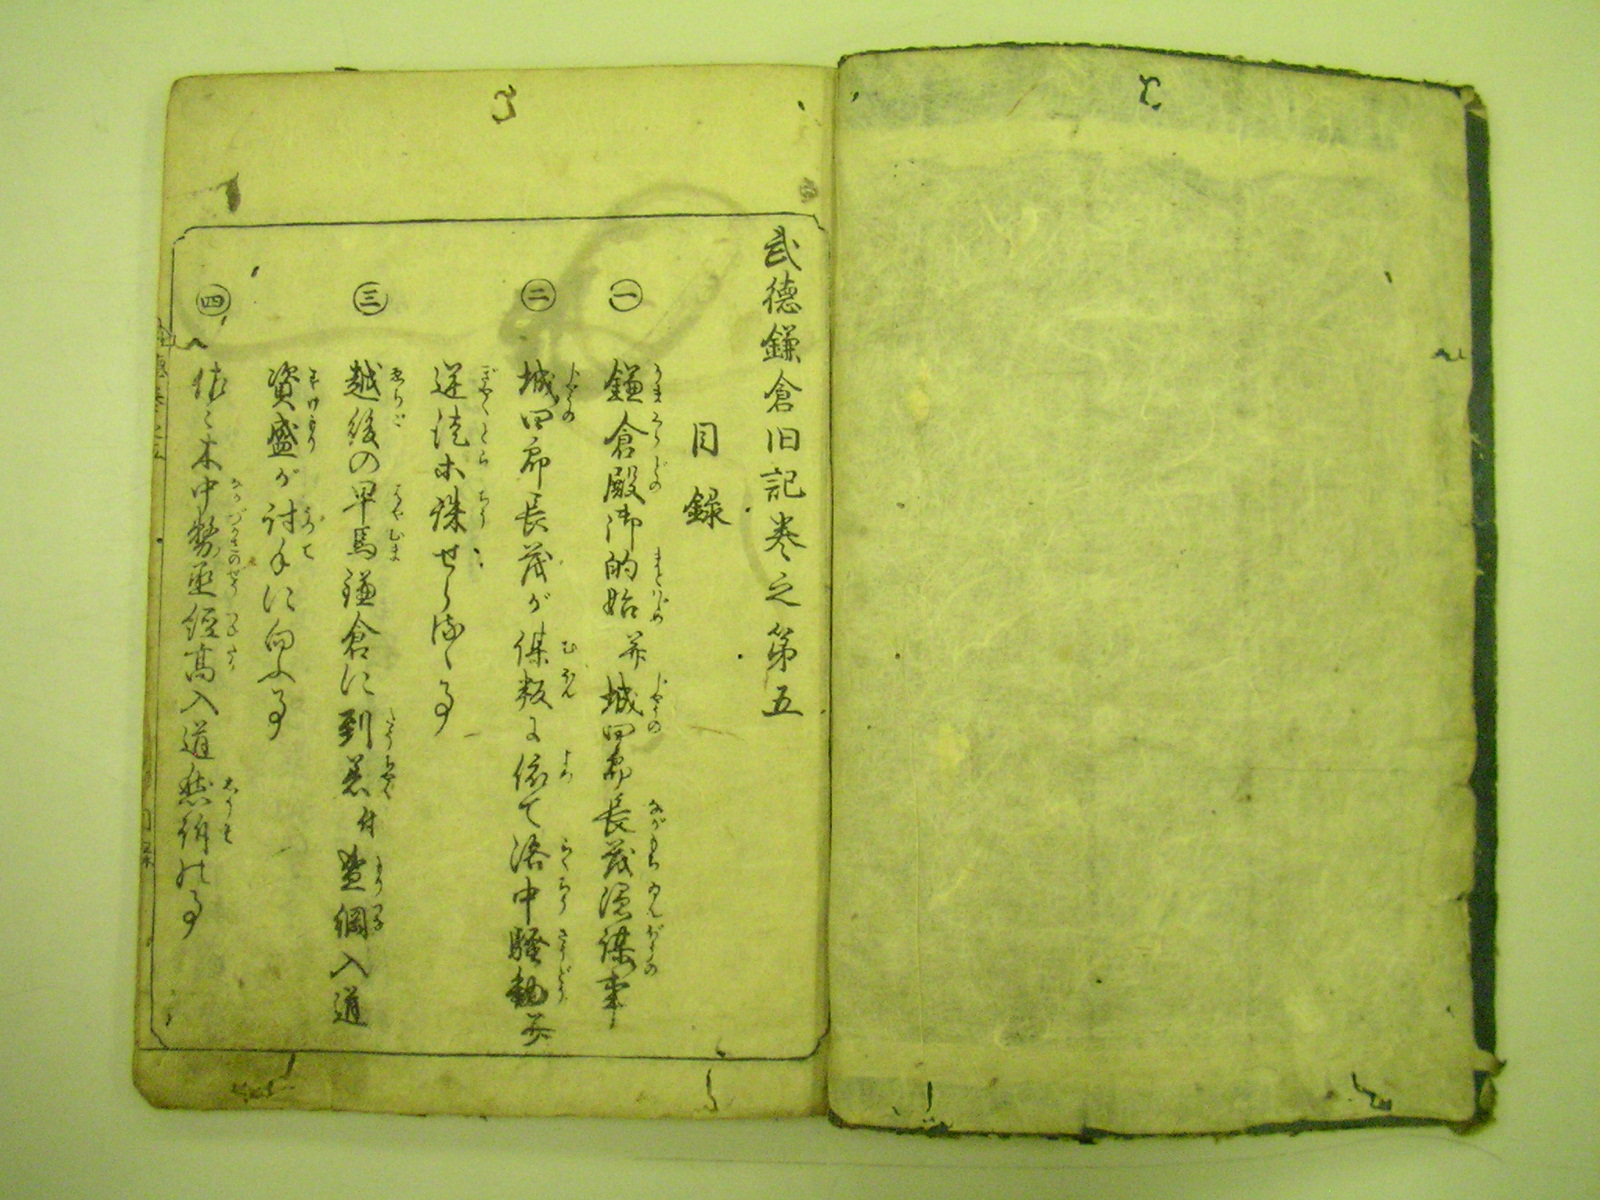 武徳鎌倉旧記巻之第五
目録
㊀ 鎌倉殿御的始并城四郎長茂隠謀事
㊁ 城四郎長茂が謀叛に依て洛中騒動并
逆徒等誅せらるゝ事
㊂ 越後の早馬鎌倉に到着付盛綱入道
資盛が討手に向ふ事
㊃ 佐々木中務丞経高入道愁訴の事